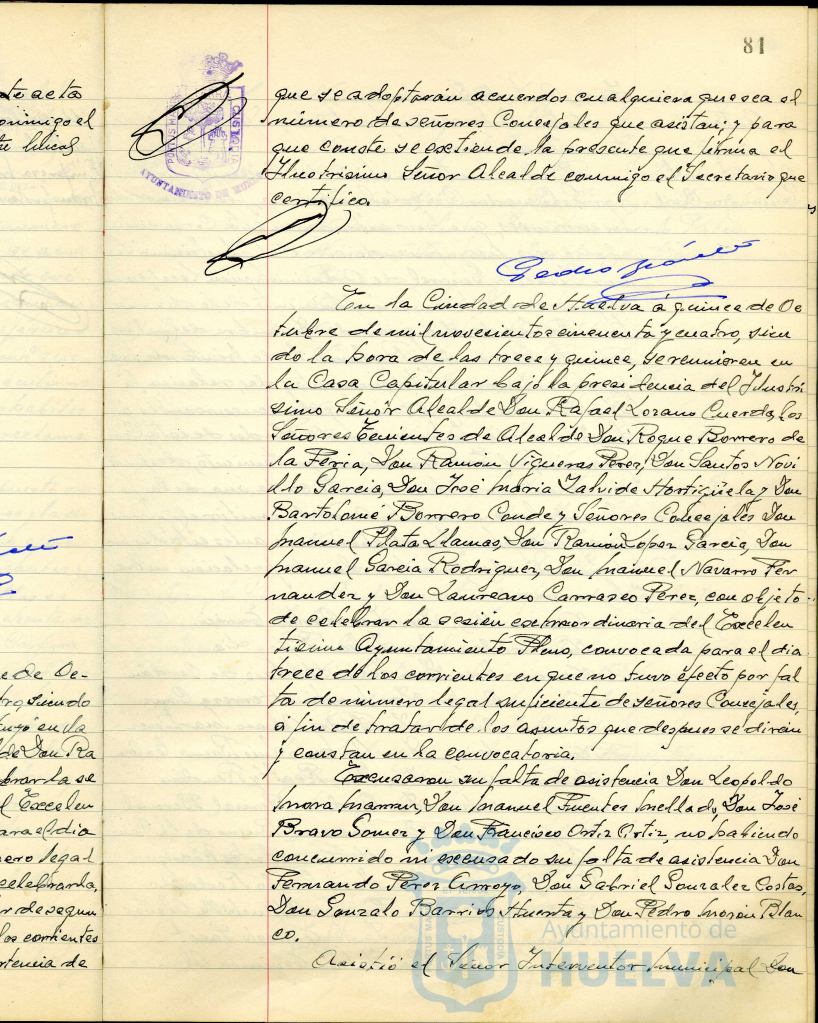 81
te acta
conmigo el
que se adoptarán acuerdos cualquiera que sea el
número de señores Concejales que asistan; y para
que conste se extiende la presente que firma el
Ilustrísimo Señor Alcalde conmigo el Secretario que
certifico.
AYUNTAMIENTO DE
Pedro
En la Ciudad de Huelva á quince de Oc
tubre de mil novecientos cincuenta y cuatro, sien
do la hora de las trece y quince, se reunieron en
la Casa Capitular bajo la presidencia del Ilustrí
simo Señor Alcalde Don Rafael Lozano Cuerda, los
Señores Tenientes de Alcalde Don Roque Borrero de
la Feria, Don Ramón Vigueras Perez, Don Santos Novi
llo Garcia, Don José Maria Zalvide Hortigüela y Don
Bartolomé Borrero Conde y Señores Concejales Don
Manuel Plata Llamas, Don Ramón Lopez Garcia, Don
Manuel Garcia Rodriguez, Don Manuel Navarro Fer
nandez y Don Laureano Carrasco Perez, con objeto
de celebrar la sesión extraordinaria del Excelen
tísimo Ayuntamiento Pleno, convocada para el dia
trece de los corrientes en que no tuvo efecto por fal
ta de número legal suficiente de señores Concejales,
á fin de tratar de los asuntos que despues se dirán
y constan en la convocatoria.
Excusaron su falta de asistencia Don Leopoldo
Mora Don Manuel Fuentes Mellado, Don José
Bravo Gomez y Don Francisco Ortiz Ortiz, no habiendo
concurrido ni excusado su falta de asistencia Don
Fernando Perez Arroyo, Don Gabriel Gonzalez Costas,
Don Gonzalo Barrios Huerta y Don Pedro Morón Blan
co.
Asistió el Señor Interventor Municipal Don
e de Oc-
tro, siendo
tuyó en la
de Don Ra
brar la se
l Excelen
ara el dia
ero legal
celebrarla,
r de segun
los corrientes
rtencia de
Ayuntamiento de
HUELVA